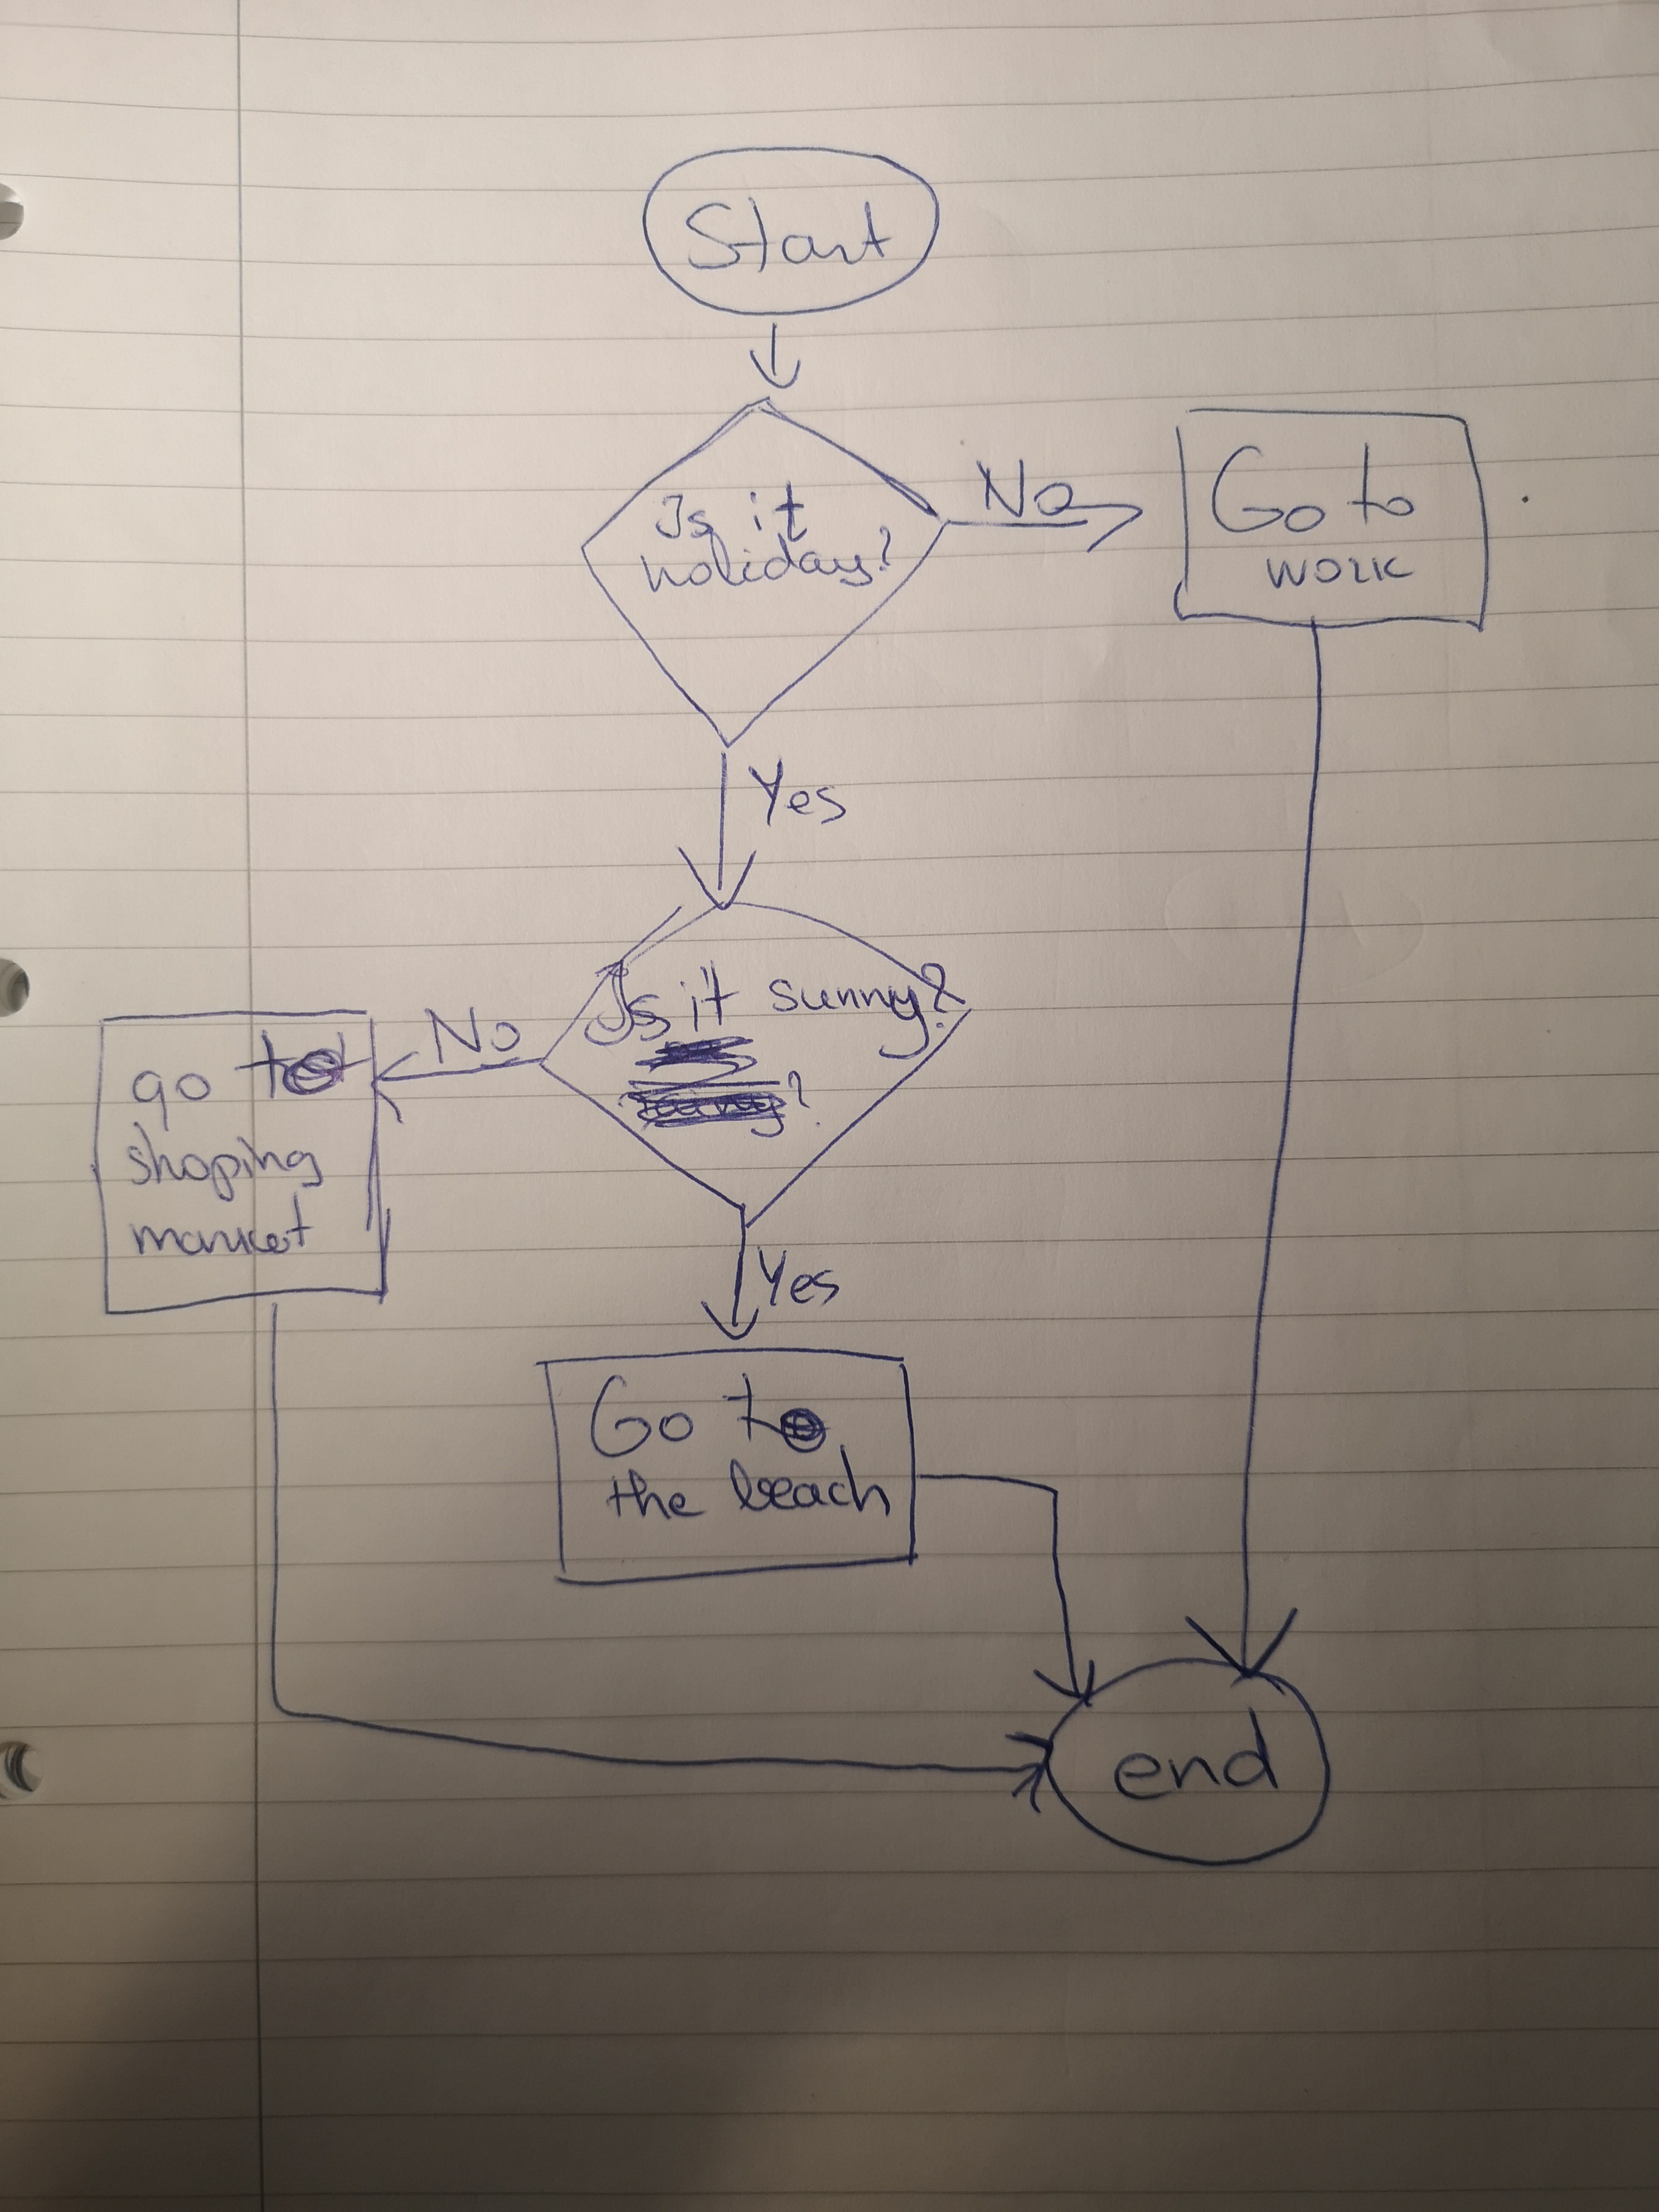 Start
Is it
holiday?
No
Go to
work
Yes
Is it sunny?
?
No
go to
shoping
market
Yes
Go to
the beach
end